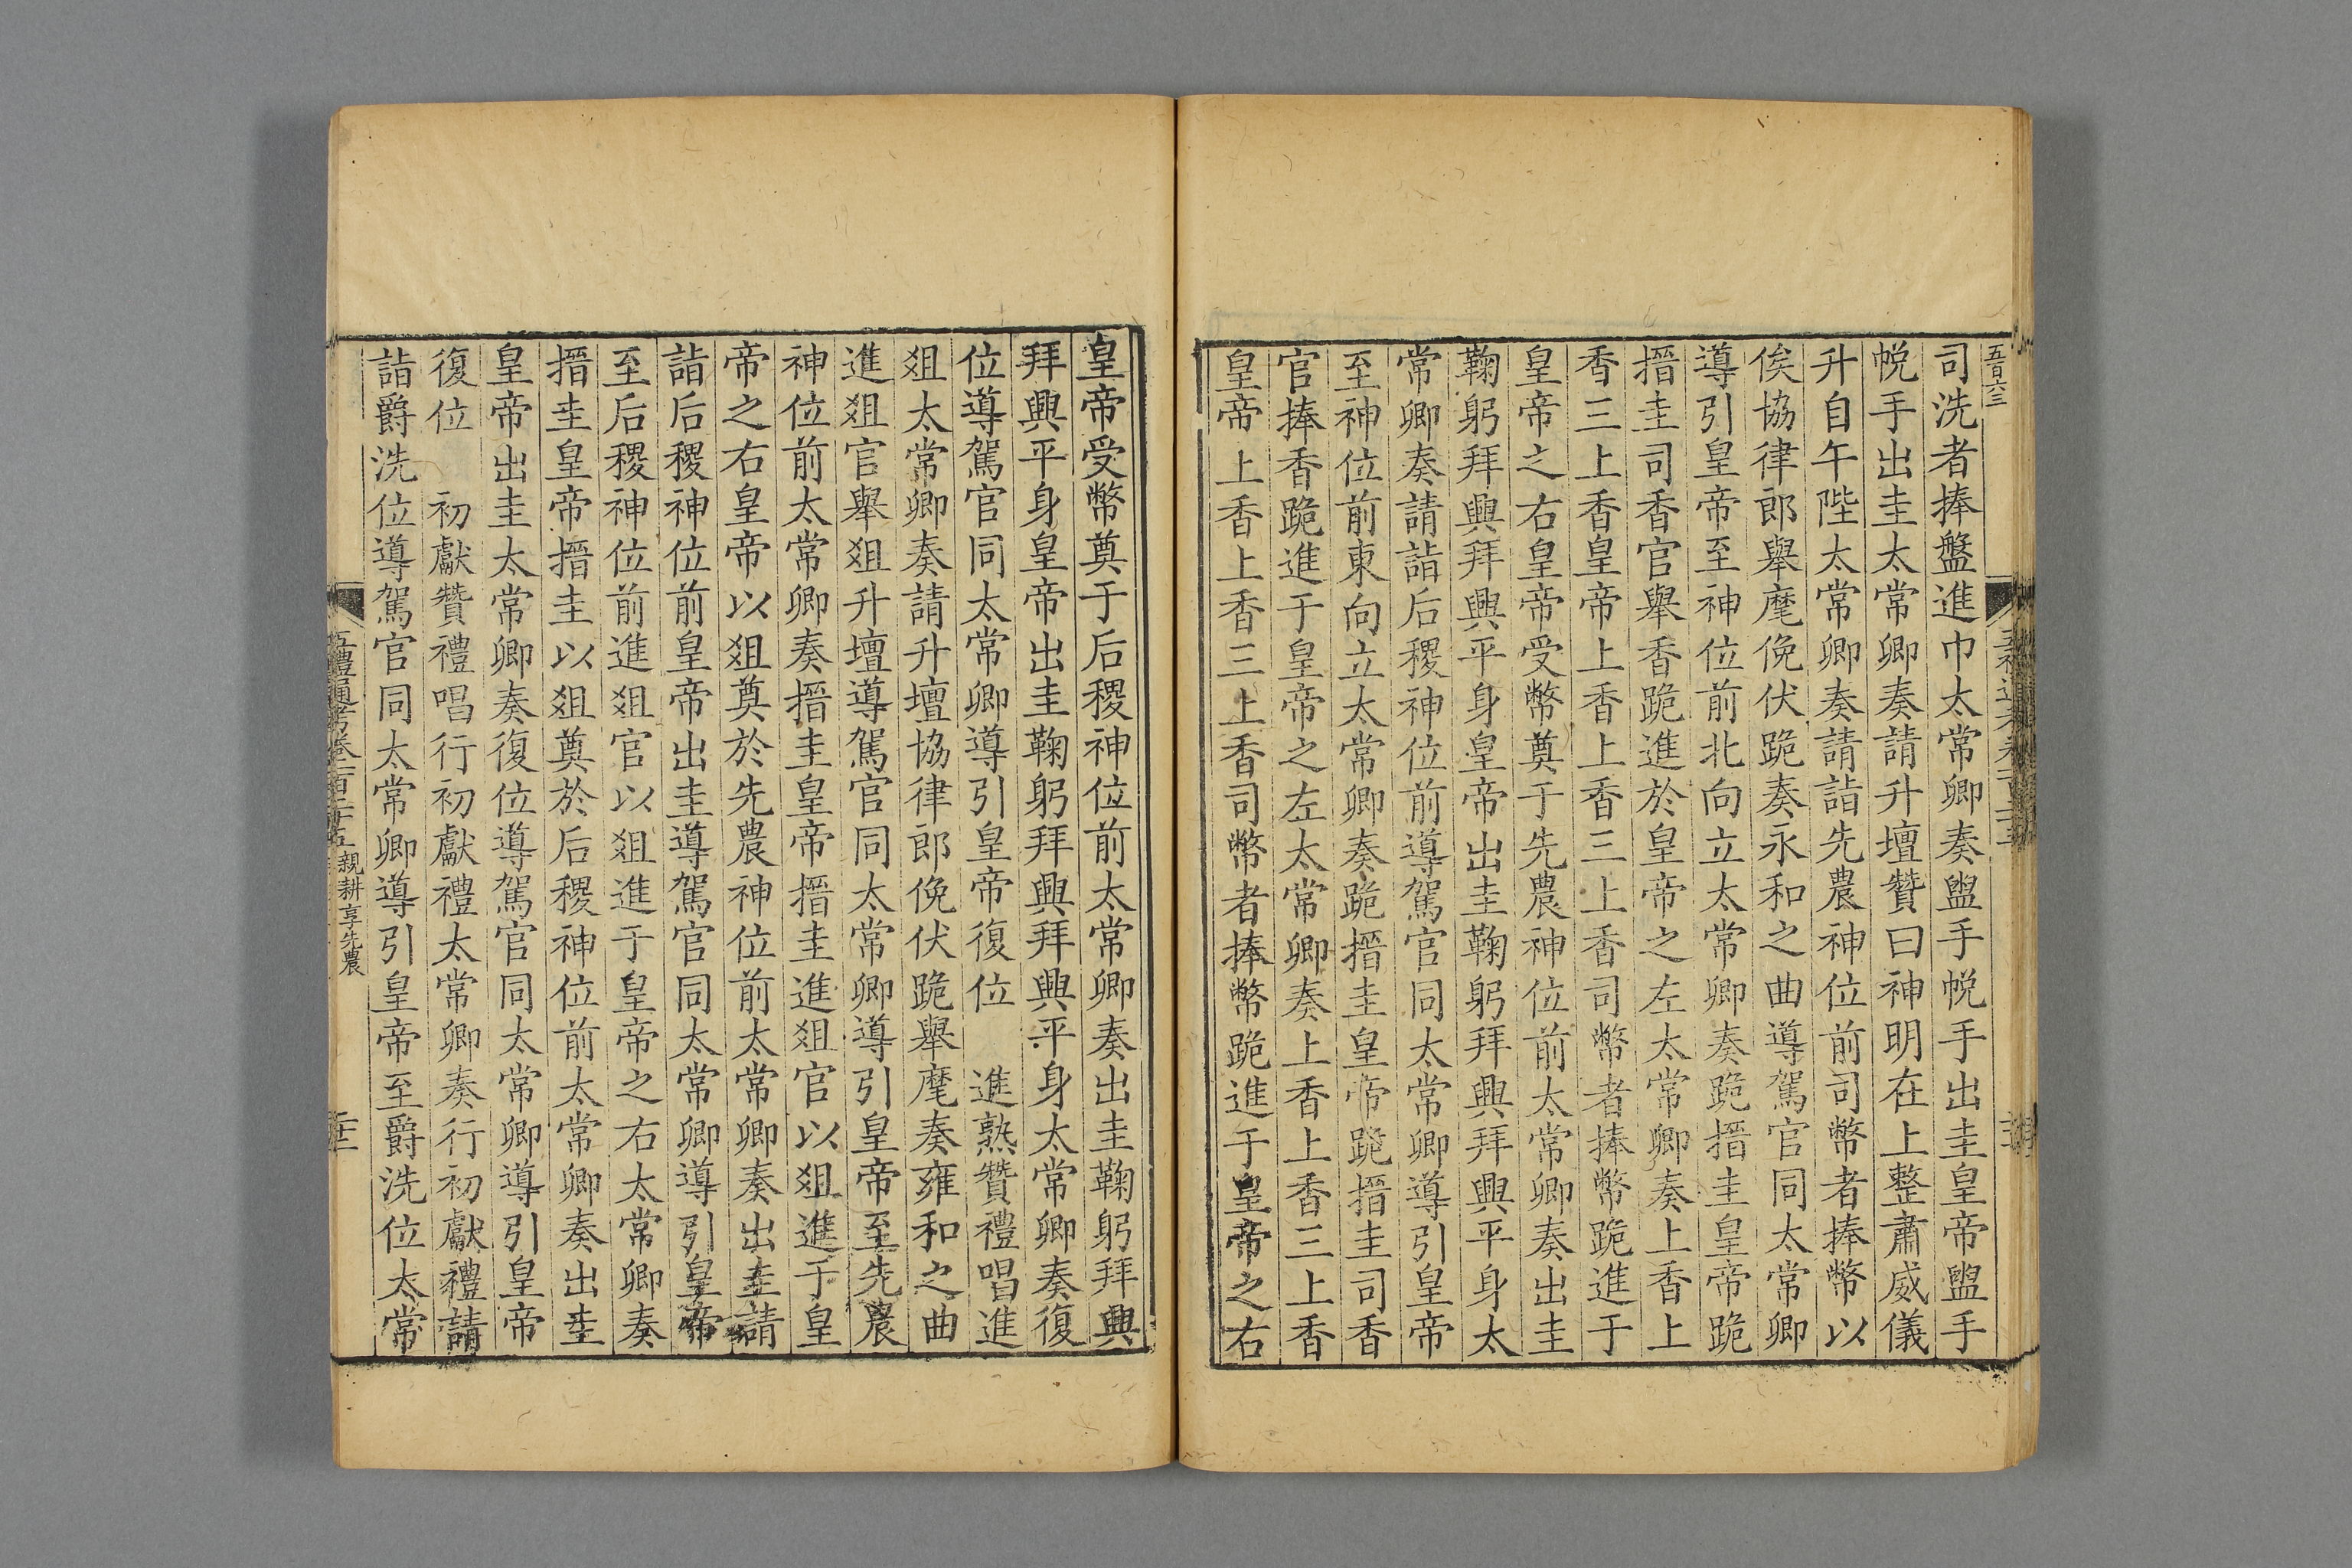 五百六三
司洗者捧盤進巾太常卿奏盥手帨手出圭皇帝盥手
帨手出圭太常卿奏請升壇贊曰神明在上整肅威儀
升自午陛太常卿奏請詣先農神位前司幣者捧幣以
俟協律郎舉麾俛伏跪奏永和之曲導駕官同太常卿
導引皇帝至神位前北向立太常卿奏跪搢圭皇帝跪
搢圭司香官舉香跪進於皇帝之左太常卿奏上香上
香三上香皇帝上香上香三上香司幣者捧幣跪進于
皇帝之右皇帝受幣奠于先農神位前太常卿奏出圭
鞠躬拜興拜興平身皇帝出圭鞠躬拜興拜興平身太
常卿奏請詣后稷神位前導駕官同太常卿導引皇帝
至神位前東向立太常卿奏跪搢圭皇帝跪搢圭司香
官捧香跪進于皇帝之左太常卿奏上香上香三上香
皇帝上香上香三上香司幣者捧幣跪進于皇帝之右
皇帝受幣奠于后稷神位前太常卿奏出圭鞠躬拜興
拜興平身皇帝出圭鞠躬拜興拜興平身太常卿奏復
位導駕官同太常卿導引皇帝復位　進熟贊禮唱進
俎太常卿奏請升壇協律郎俛伏跪舉麾奏雍和之曲
進俎官舉俎升壇導駕官同太常卿導引皇帝至先農
神位前太常卿奏搢圭皇帝搢圭進俎官以俎進于皇
帝之右皇帝以俎奠於先農神位前太常卿奏出圭請
詣后稷神位前皇帝出圭導駕官同太常卿導引皇帝
至后稷神位前進俎官以俎進于皇帝之右太常卿奏
搢圭皇帝搢圭以俎奠於后稷神位前太常卿奏出圭
皇帝出圭太常卿奏復位導駕官同太常卿導引皇帝
復位　初獻贊禮唱行初獻禮太常卿奏行初獻禮請
詣爵洗位導駕官同太常卿導引皇帝至爵洗位太常
五禮通考卷一百二十五　親耕享先農